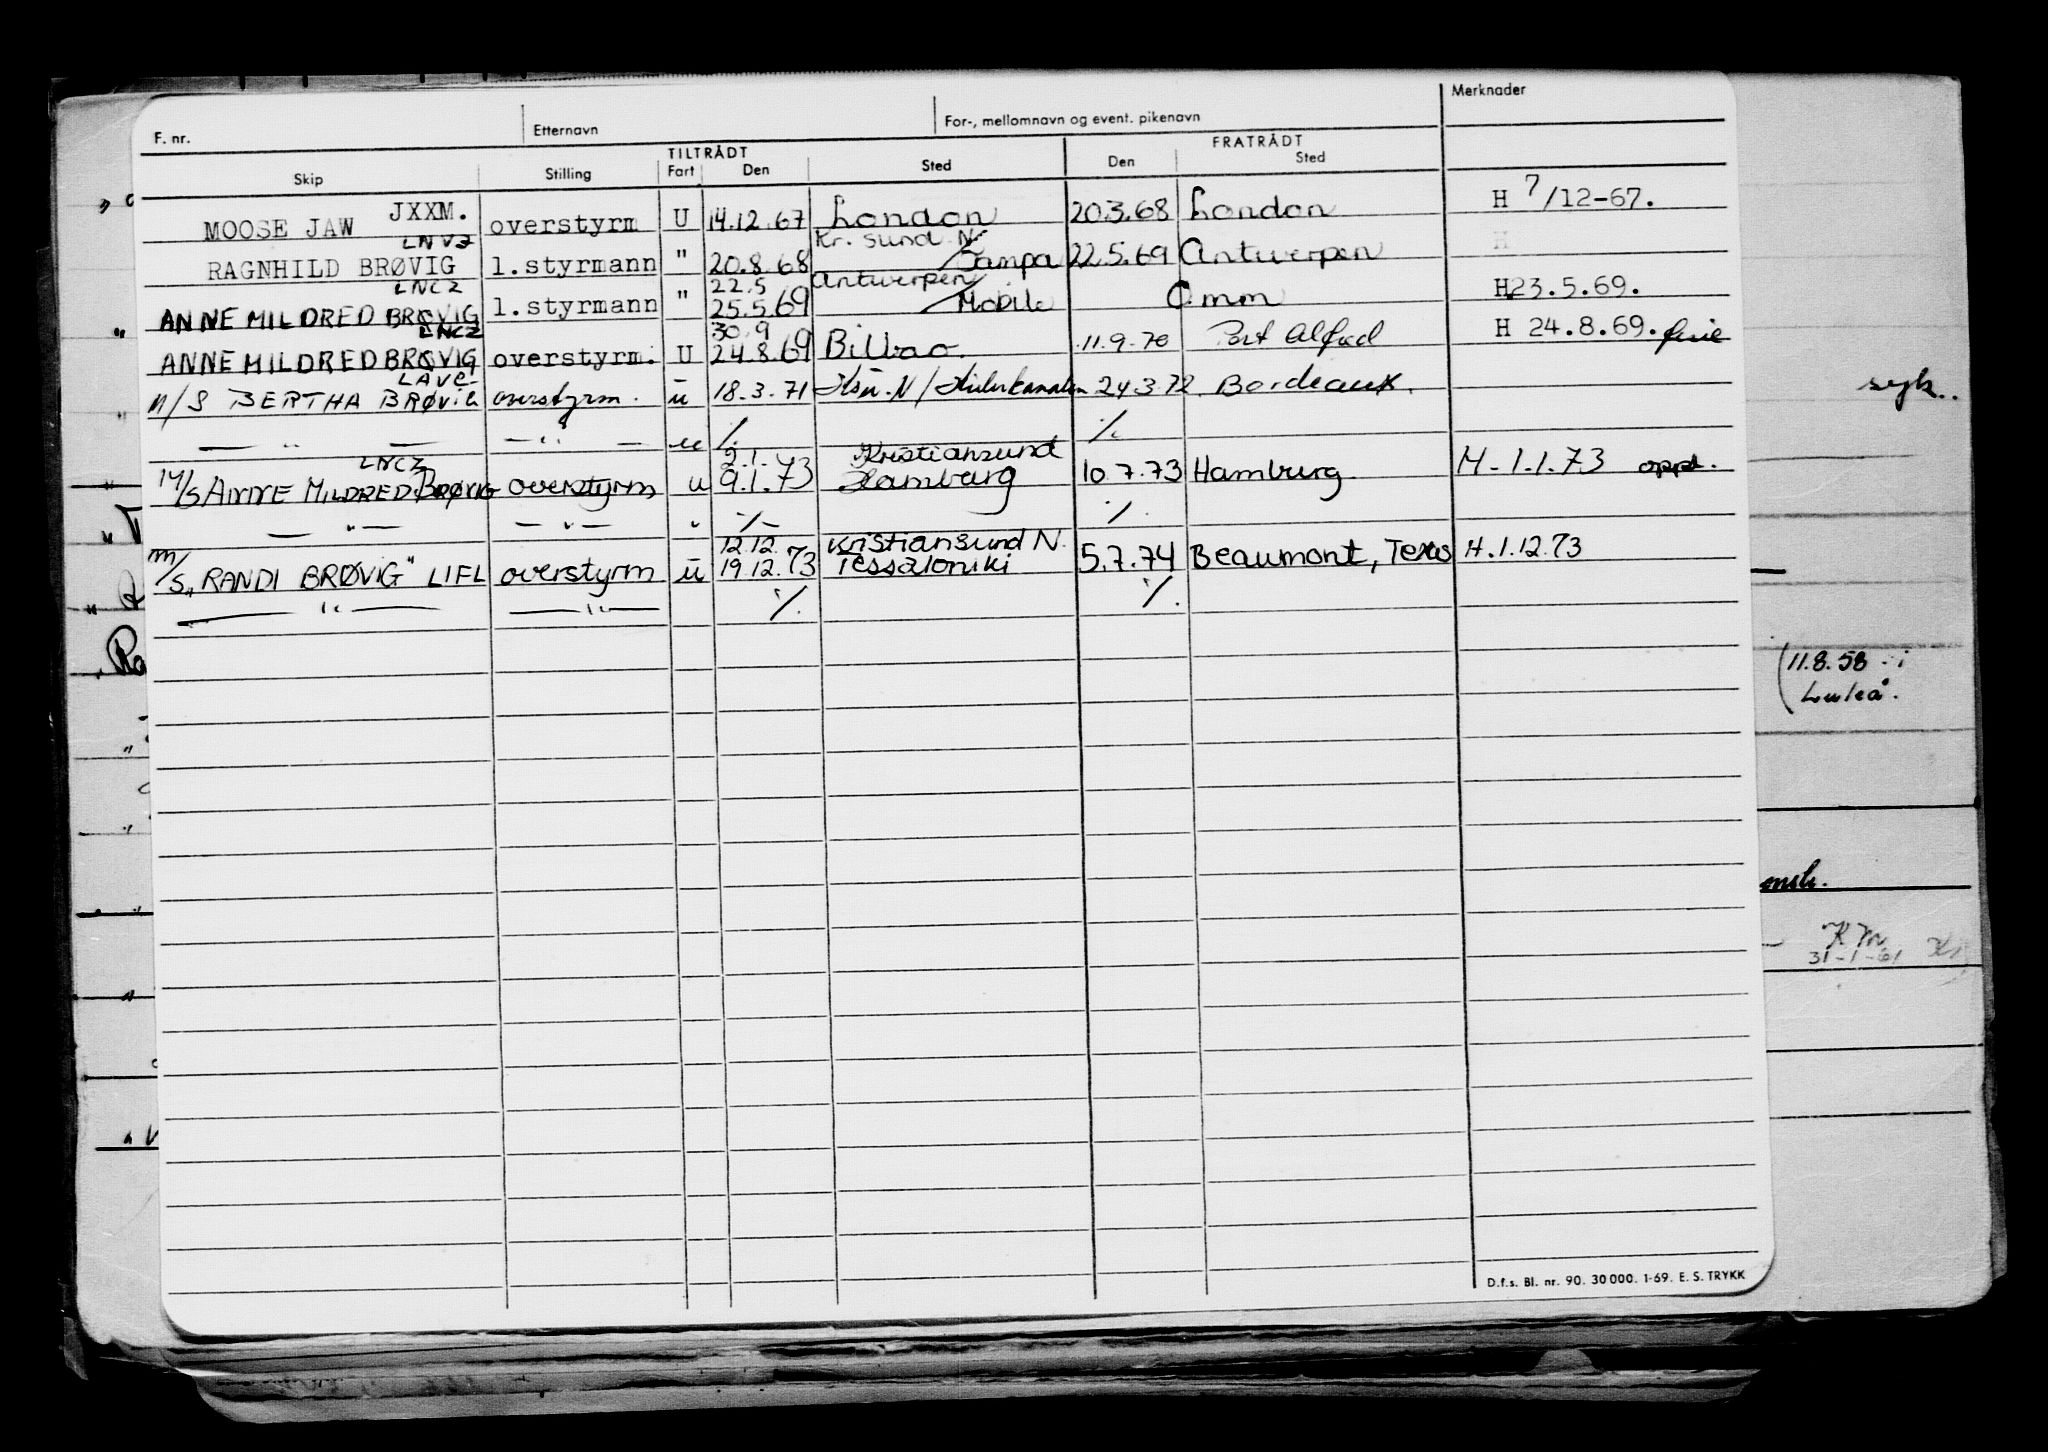 Merknader
F. nr. Etternavn For-, mellomnavn og event. pikenavn
TILTRÅDT FRATRÅDT
Skip Stilling Fart Den Sted Den Sted
JXXM.
MOOSE JAW overstyrm U 14.12.67 London 20.3.68 London H 7/12-67.
LNVZ Kr. sund. N.
RAGNHILD BRØVIG 1.styrmann " 20.8.68 /Tampa 22.5.69 Antwerpen H
LNCZ 22.5 Antwerpen
ANNE MILDRED BRØVIG 1.styrmann " 25.5.69 /Mobile Omm H23.5.69.
LNCZ 30.9
ANNE MILDRED BRØVIG overstyrm. U 24.8.69 Bilbao. 11.9.70 Port Alfred H 24.8.69. ferie
M/S BERTHA BRØVIG overstyrm. u 18.3.71 Ksu. N / Kielerkanalen 24.3.72. Bordeaux.
— " — — " — u ·/. ·/.
LNCZ 2.1. Kristiansund
M/S ANNE MILDRED BRØVIG overstyrm u 9.1.73 Hamburg 10.7.73 Hamburg. H-1.1.73 oppr.
— " — — " — " ·/. ·/.
12.12. Kristiansund N.
M/S "RANDI BRØVIG" LIFL overstyrm u 19.12.73 Tessaloniki 5.7.74 Beaumont, Texas H.1.12.73
— " — — " — ·/. ·/.
syk..
(11.8.58 i
Luleå.
KM
31-1-61
D.f.s. Bl. nr. 90. 30000. 1-69. E. S. TRYKK